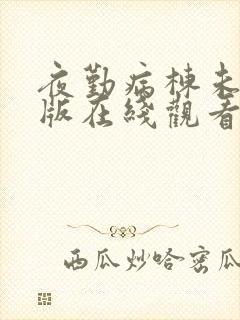 夜勤病棟未
版在綫觀看
西瓜炒哈密瓜